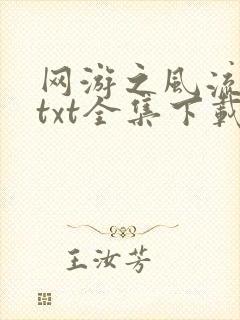 网游之风流
txt全集下载
王汝芳